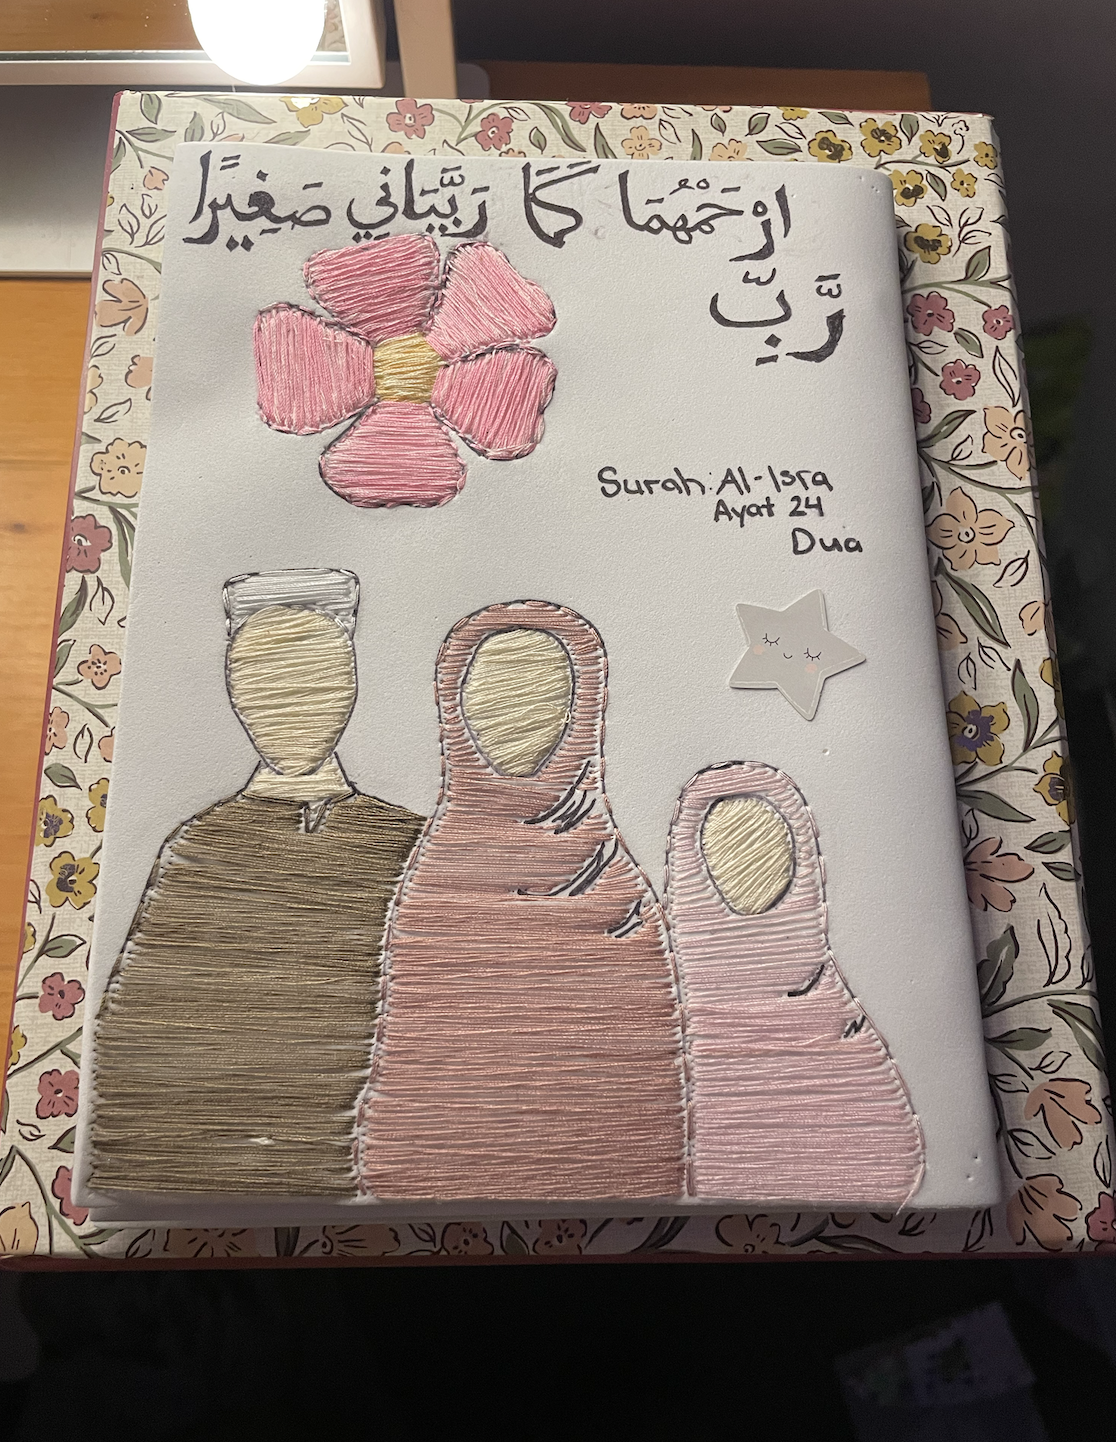 ارْحَمْهُمَا كَمَا رَبَّيَانِي صَغِيرًا
رَّبِّ
Surah: Al-Isra
Ayat 24
Dua